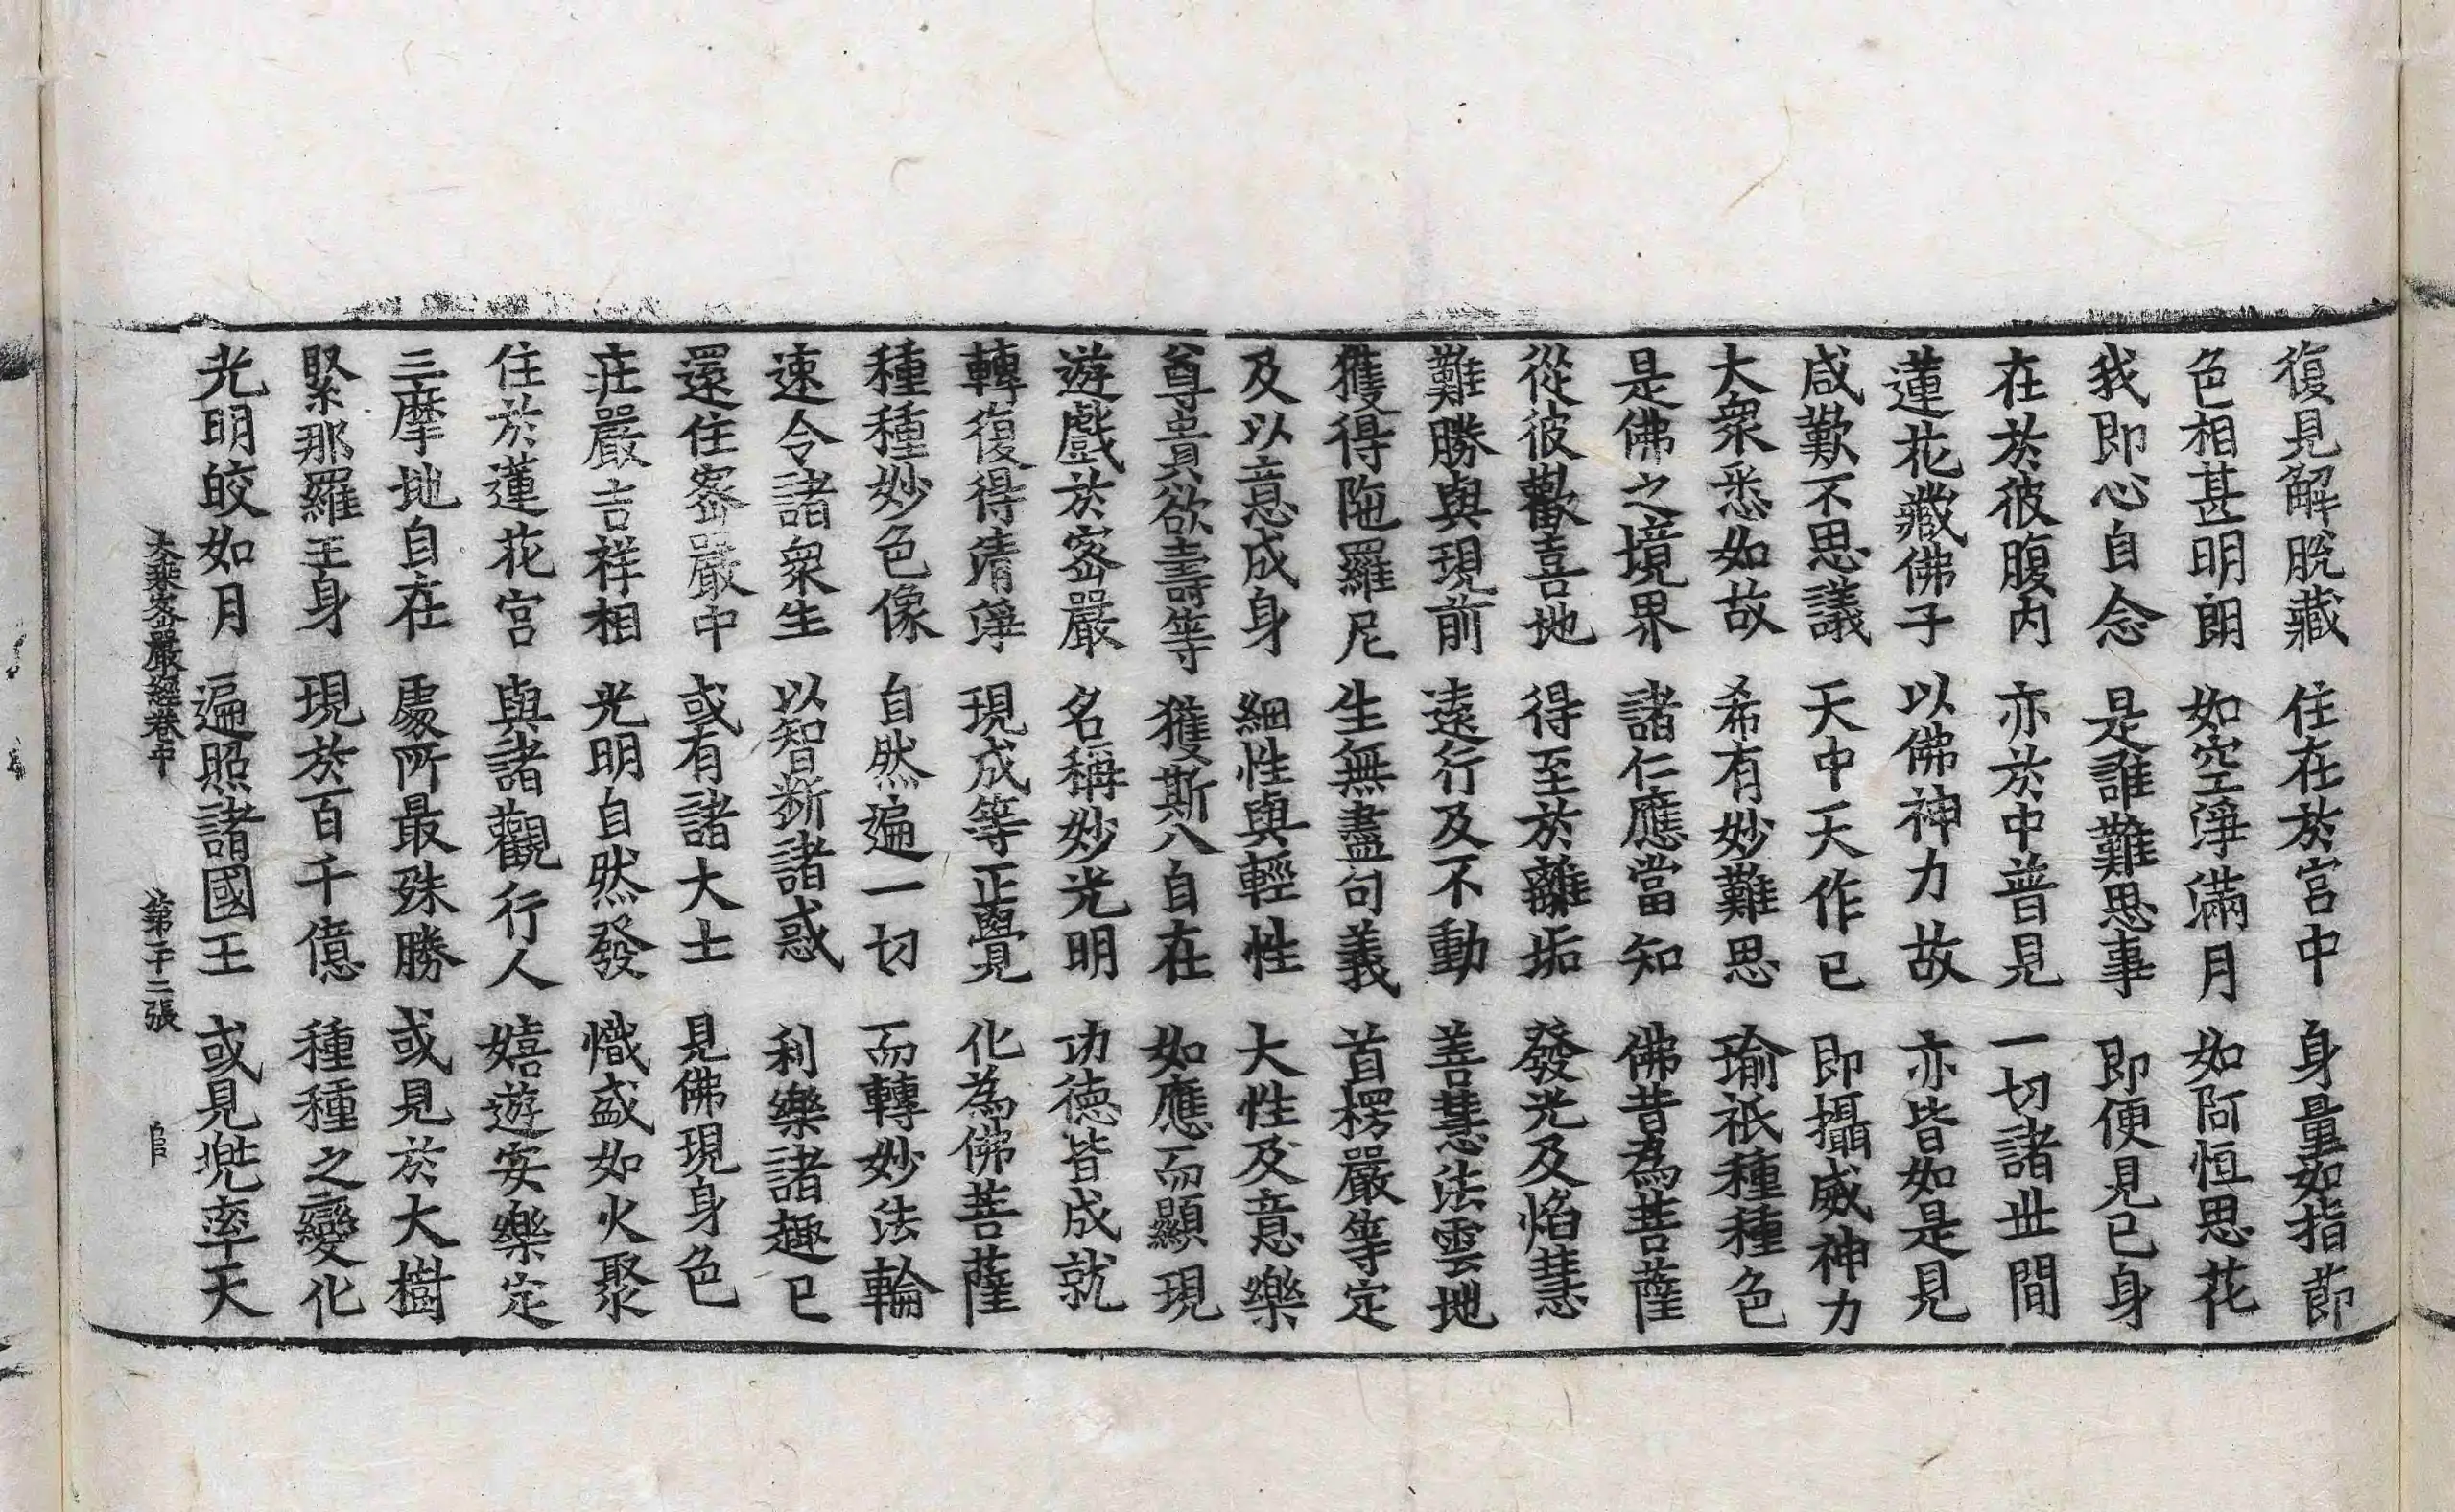 復見解脫藏 住在於宮中 身量如指節
色相甚明朗 如空淨滿月 如阿恒思花
我即心自念 是誰難思事 即便見已身
在於彼腹内 亦於中普見 一切諸世間
蓮花藏佛子 以佛神力故 亦皆如是見
咸歎不思議 天中天作已 即攝威神力
大衆悉如故 希有妙難思 瑜祇種種色
是佛之境界 諸仁應當知 佛昔為菩薩
從彼歡喜地 得至於離垢 發光及焰慧
難勝與現前 遠行及不動 善慧法雲地
獲得陁羅尼 生無盡句義 首楞嚴等定
及以意成身 細性與輕性 大性及意樂
尊貴欲壽等 獲斯八自在 如應而顯現
遊戲於密嚴 名稱妙光明 功德皆成就
轉復得清淨 現成等正覺 化為佛菩薩
種種妙色像 自然遍一切 而轉妙法輪
速令諸衆生 以智斷諸惑 利樂諸趣已
還住密嚴中 或有諸大士 見佛現身色
莊嚴吉祥相 光明自然發 熾盛如火聚
住於蓮花宮 與諸觀行人 嬉遊安樂定
三摩地自在 處所最殊勝 或見於大樹
緊那羅王身 現於百千億 種種之變化
光明皎如月 遍照諸國王 或見兠率天
大乘密嚴經卷中 第十二張